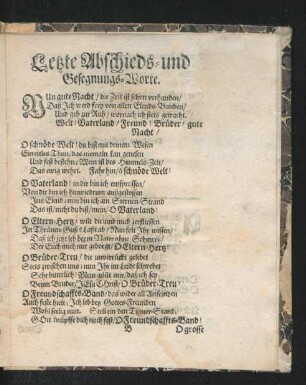 Letzte Abschieds- und
Gesegnungs-Worte.
NUn gute Nacht / die Zeit ist schon verhanden /
Daß Jch werd frey von allen Elends-Banden /
Und geh zur Ruh / wornach ich stets getracht.
Welt / Vaterland / Freund / Brüder / gute
Nacht /
O schnöde Welt / du bist mit deinem Wesen
Ein eitles Thun / das niemals kan genesen
Und fest bestehn; Mein ist des Himmels-Zelt /
Das ewig wehrt. Fahr hin / ô schnöde Welt /
O Vaterland / in dir bin ich entsprossen /
Von dir bin ich hinwiedrum außgestossen
Jns Elend / nun bin ich am Sternen-Strand
Das ist / nicht du bist / mein / O Vaterland
O Eltern-Hertz / wilst du um mich zerfliessen
Jn Thränen-Guß? Laßt ab / Nun solt Jhr wissen /
Daß ich jetzt leb beym Vater ohne Schmertz /
Der Euch mich nur geborgt / O Eltern-Hertz /
O Brüder-Treu / die unverrückt gelebet
Stets zwischen uns / nun Jhr im Leide schwebet
Sehr hefftiglich / Mein gönt mir / daß ich sey
Beym Bruder / JEsu Christ / O Brüder-Treu /
O Freundschaffts-Band / das wider all Anfeinden
Auch feste hielt: Jch leb bey Gottes-Freunden
Wohl seelig nun. Stell ein den Threnen-Stand.
GOtt knüpffe dich noch fest / O Freundschaffts-Band /
B
O grosse